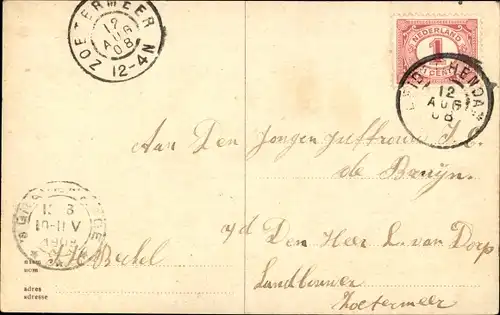 ZOETERMEER
12
AUG
08
12-4N
NEDERLAND
1
CENT
LEIDSCHENDAM
12
AUG
08
Aan Den Jongen Juffrouw J. C.
de Bruijn.
p/d Den Heer L. van Dorp
Landbouwer
Zoetermeer
'SGRAVENHAGE
13 8
10-11V
1908
naam
nom
adres
adresse